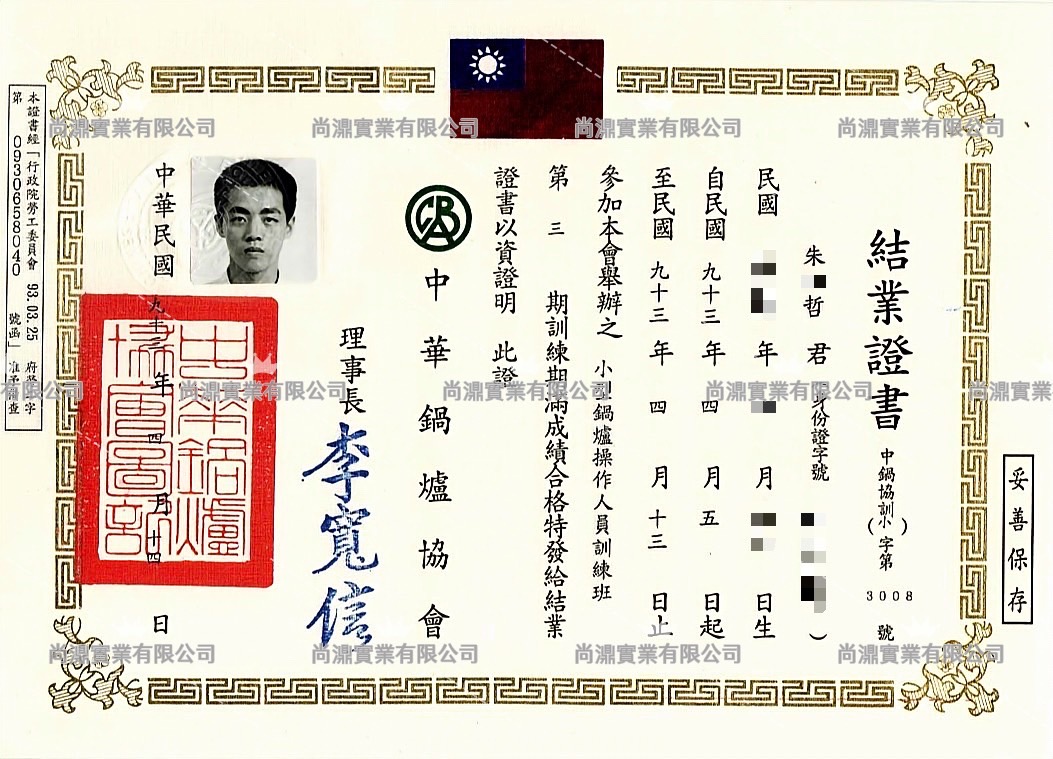 結業證書
中鍋協訓(小)字第 3008 號
朱 哲 君 (身份證字號 )
民國 年 月 日生
自民國 九十三 年 四 月 五 日起
至民國 九十三 年 四 月 十三 日止
參加本會舉辦之 小型鍋爐操作人員訓練班
第 三 期訓練期滿成績合格特發給結業
證書以資證明 此證
CBA
中華鍋爐協會
理事長 李寬信
中華民國 九十三 年 四 月 廿四 日
中華鍋爐協會圖記
本證書經「行政院勞工委員會 93.03.25 府勞 字
第 0930658040 號函」准予備查
妥善保存
尚鼎實業有限公司 尚鼎實業有限公司 尚鼎實業有限公司 尚鼎實業有限公司
尚鼎實業有限公司 尚鼎實業有限公司 尚鼎實業有限公司 尚鼎實業有限公司
尚鼎實業有限公司 尚鼎實業有限公司 尚鼎實業有限公司 尚鼎實業有限公司